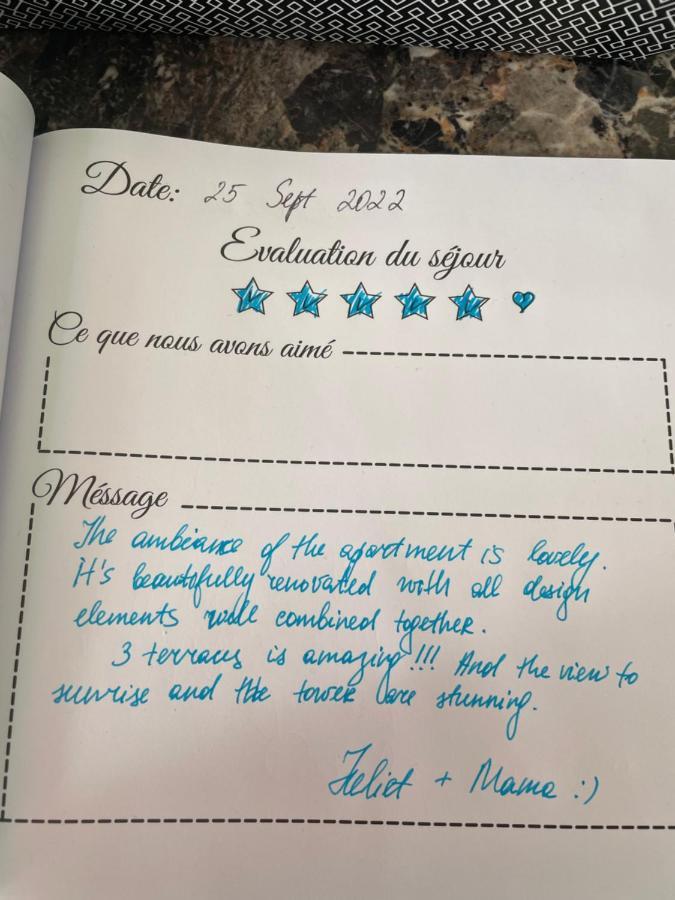 Date: 25 Sept 2022
Evaluation du séjour
Ce que nous avons aimé
Méssage
The ambiance of the apartment is lovely.
It's beautifully renovated with all design
elements well combined together.
3 terraces is amazing!!! And the view to
sunrise and the tower are stunning.
Juliet + Mama :)